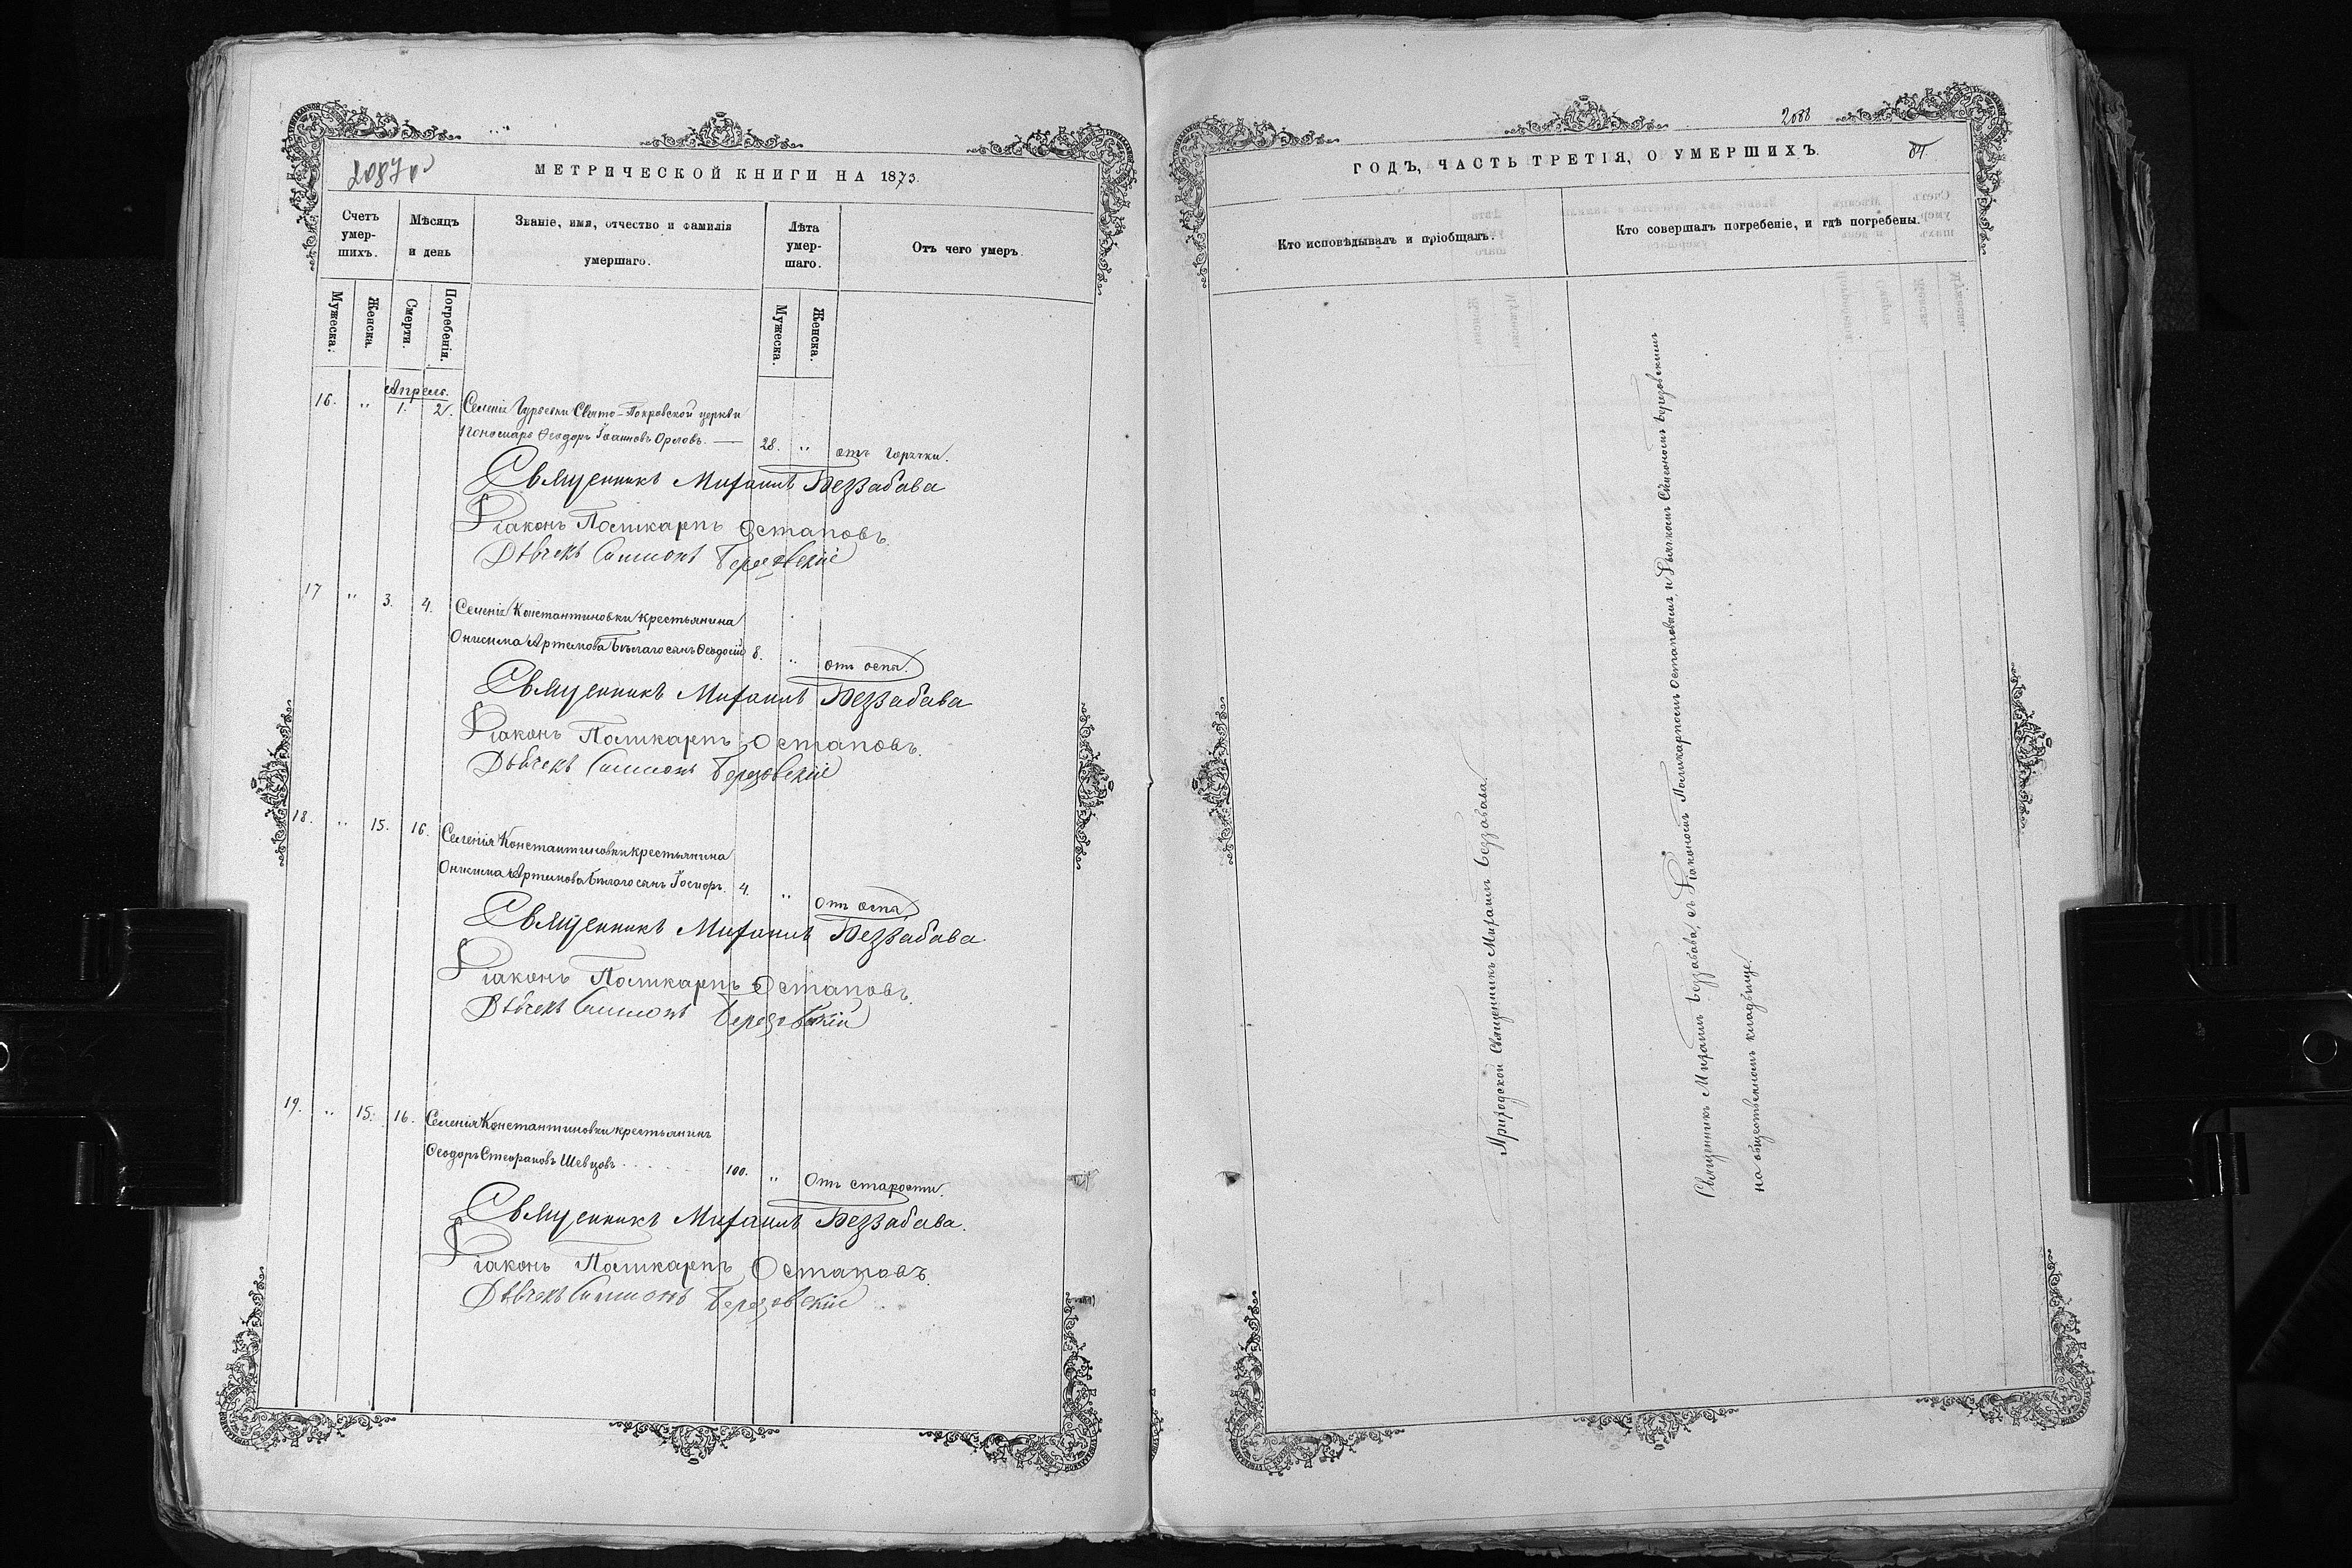 2087 об
МЕТРИЧЕСКОЙ КНИГИ НА 1873.
Счетъ умер-шихъ.
Мѣсяцъ и день
Званіе, имя, отчество и фамилія умершаго.
Лѣта умер-шаго.
Отъ чего умеръ.
Мужеска.
Женска.
Смерти.
Погребенія.
Мужеска.
Женска.
Апрель.
16. " 1. 2. Селенія Гурьевки Свято-Покровской церкви
Пономарь Ѳеодоръ Іоанновъ Орловъ. — 28. " отъ горячки.
Священникъ Михаилъ Беззабава
Діаконъ Поликарпъ Остаповъ.
Дьячекъ Симеонъ Березовскій
17 " 3. 4. Селенія Константиновки крестьянина
Онисима Артемова Бѣлаго сынъ Ѳеодосій 8. " отъ оспы.
Священникъ Михаилъ Беззабава
Діаконъ Поликарпъ Остаповъ.
Дьячекъ Симеонъ Березовскій
18. " 15. 16. Селенія Константиновки крестьянина
Онисима Артемова Бѣлаго сынъ 4. " Отъ оспы
Священникъ Михаилъ Беззабава
Діаконъ Поликарпъ Остаповъ.
Дьячекъ Симеонъ Березовскій
19. " 15. 16. Селенія Константиновки крестьянинъ
Ѳеодоръ Стефановъ Шевцовъ . . . . . 100. " Отъ старости.
Священникъ Михаилъ Беззабава.
Діаконъ Поликарпъ Остаповъ.
Дьячекъ Симеонъ Березовскій
2088
ГОДЪ, ЧАСТЬ ТРЕТІЯ, О УМЕРШИХЪ.
Кто исповѣдывалъ и пріобщалъ.
Кто совершалъ погребеніе, и гдѣ погребены.
Приходской Священникъ Михаилъ Беззабава.
Священникъ Михаилъ Беззабава, съ Діакономъ Поликарпомъ Остаповымъ, и Дьячкомъ Симеономъ Березовскимъ
на общественномъ кладбище.